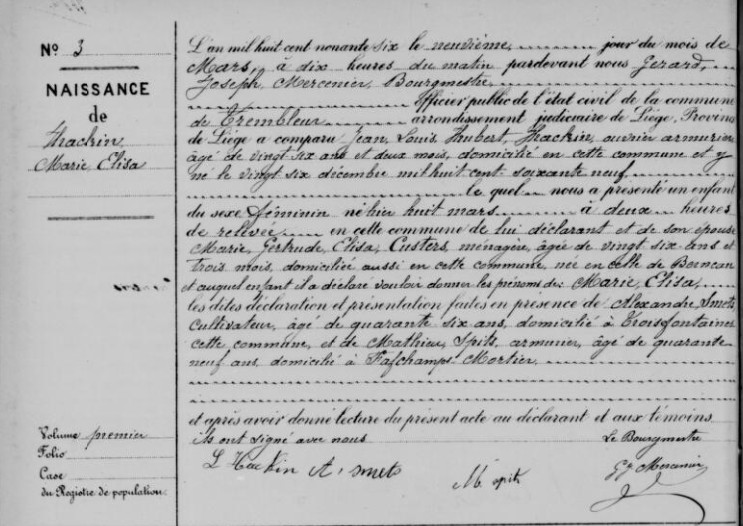 N° 3
NAISSANCE
de
Thackin,
Marie Elisa
Volume premier
Folio
Case
du Registre de population
L'an mil huit cent nonante six le neuvième jour du mois de
Mars, à dix heures du matin pardevant nous Gérard,
Joseph, Mercenier, Bourgmestre,
Officier public de l'état civil de la commune
de Trembleur arrondissement judiciaire de Liége, Province
de Liége a comparu Jean, Louis, Hubert, Thackin, ouvrier armurier
âgé de vingt six ans et deux mois, domicilié en cette commune et y
né le vingt six décembre mil huit cent soixante neuf
le quel nous a présenté un enfant
du sexe féminin né hier huit mars à deux heures
de relevée en cette commune de lui déclarant et de son épouse
Marie, Gertrude, Elisa, Custers, ménagère, âgée de vingt six ans et
trois mois, domiciliée aussi en cette commune, née en celle de Berneau
et auquel enfant il a déclaré vouloir donner les prénoms de Marie, Elisa,
les dites déclaration et présentation faites en présence de Alexandre Smets
cultivateur, âgé de quarante six ans, domicilié à Troisfontaines
cette commune, et de Mathieu, Spits, armurier, âgé de quarante
neuf ans, domicilié à Fafchamps Mortier
et après avoir donné lecture du présent acte au déclarant et aux témoins
ils ont signé avec nous Le Bourgmestre
L Hackin A. Smets M spits Gd Mercenier